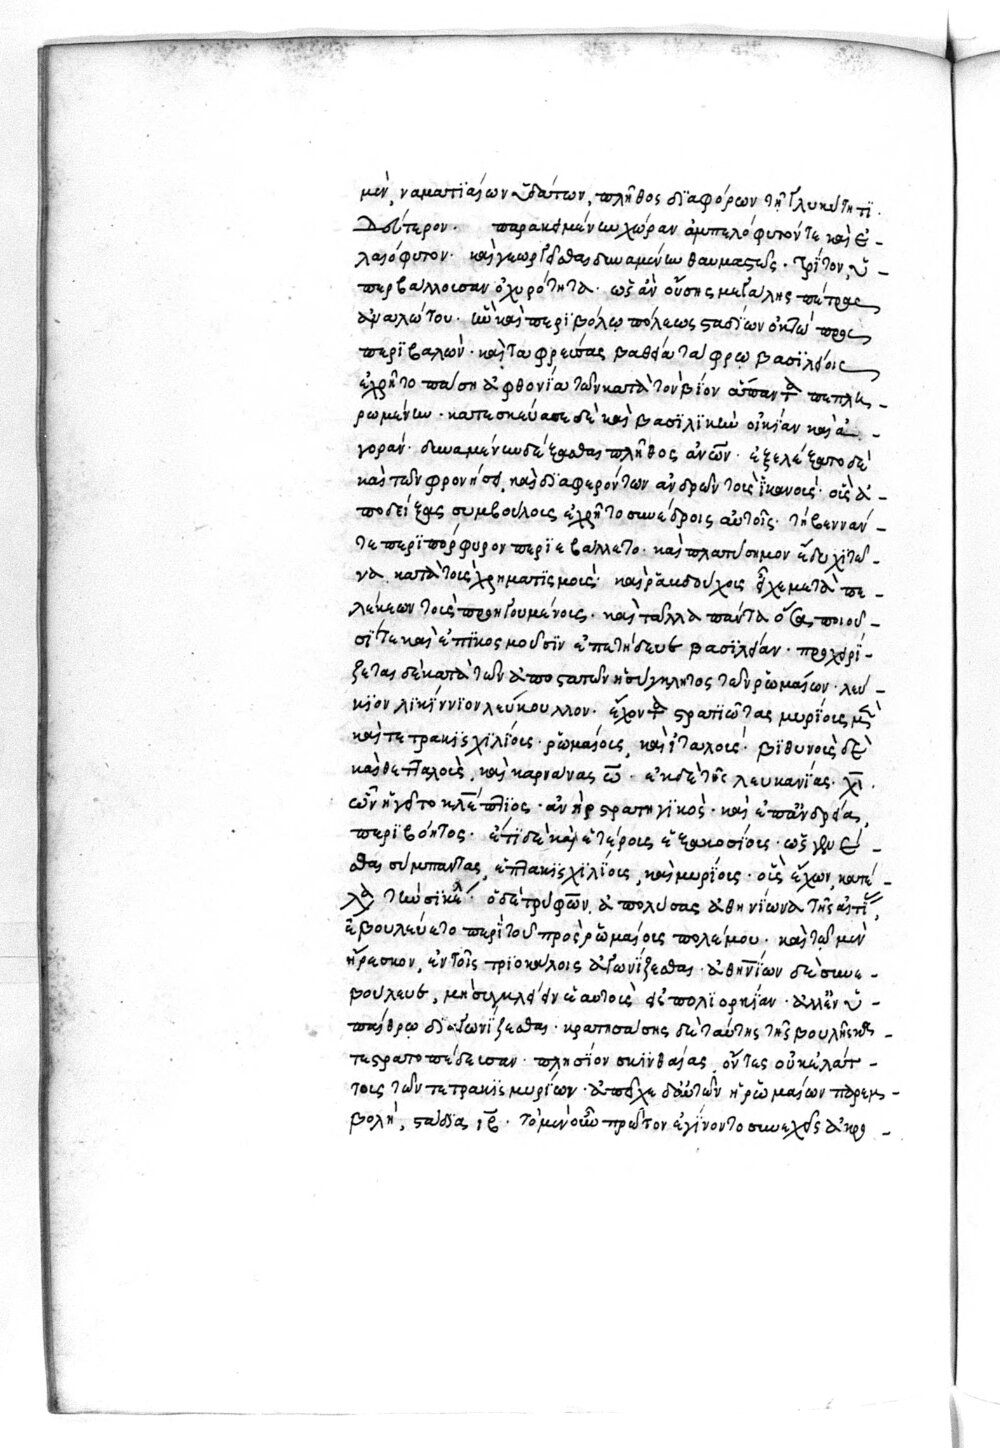 μὲν, ναματιαίων ὑδάτων, πλῆθος διαφόρων τῇ γλυκύτητι.
Δεύτερον. παρακειμένην χώραν ἀμπελόφυτόν τε καὶ ἐ-
λαιόφυτον. καὶ γεωργεῖσθαι δυναμένην θαυμαστῶς. Τρίτον, ὑ-
περβάλλουσαν ὀχυρότητα. ὡς ἂν οὔσης μεγάλης πέτρας
ἀναλώτου. ἣν καὶ περιβόλῳ πόλεως σταδίων ὀκτὼ προσ
περιβαλὼν. καὶ ταφρεύσας βαθείᾳ τάφρῳ βασιλείοις
ἐχρῆτο πάσῃ ἀφθονίᾳ τῶν κατὰ τὸν βίον ἁπάντων πεπλη-
ρωμένην. κατεσκεύασε δὲ καὶ βασιλικὴν οἰκίαν καὶ ἀ-
γορὰν. δυναμένην δέξασθαι πλῆθος ἀνῶν. ἐξελέξατο δὲ
καὶ τῶν φρονήσει, καὶ διαφερόντων ἀνδρῶν τοὺς ἱκανοὺς. οὓς ἀ-
ποδείξας συμβούλους ἐχρῆτο συνέδροις αὐτοῖς. τήβενναν
τε περιπόρφυρον περιεβάλλετο. καὶ πλατύσημον ἔδυ χιτῶ-
να. κατὰ τοὺς χρηματισμοὺς. καὶ ῥαβδούχους εἶχε μετὰ πε-
λέκεων τοὺς προηγουμένους. καὶ τἄλλα πάντα ὅσα ποιοῦ-
σί τε καὶ ἐπικοσμοῦσιν ἐπετήδευε βασιλείαν. προχειρί-
ζεται δὲ κατὰ τῶν ἀποστατῶν ἡ σύγκλητος τῶν ῥωμαίων. λεύ-
κιον λικίννιον λεύκουλλον. ἔχοντα στρατιώτας μυρίους μὲν
καὶ τετρακισχιλίους. ῥωμαίους, καὶ ἰταλοὺς. βιθυνοὺς δὲ
καὶ θετταλοὺς, καὶ καρνανας ω. ἐκ δὲ τῆς λευκανίας. χ.
ὧν ἡγεῖτο κλέπτιος. ἀνὴρ στρατηγικὸς. καὶ ἐπ' ἀνδρείᾳ,
περιβόητος. ἔτι δὲ καὶ ἑτέρους ἑξακοσίους. ὡς γενέ-
σθαι σύμπαντας, ἑπτακισχιλίους, καὶ μυρίους. οὓς ἔχων, κατέ-
λα τὴν σικελ. ὁ δὲ τρύφων, ἀπολύσας ἀθηνίωνα τῆς αἰτί,
ἐβουλεύετο περὶ τοῦ πρὸς ῥωμαίους πολέμου. καὶ τῷ μὲν
ἤρεσκον, ἐν τοῖς τριοκάλοις ἀγωνίζεσθαι. ἀθηνίων δὲ συνε-
βούλευε, μὴ συγκλείειν ἑαυτοὺς εἰς πολιορκίαν. ἀλλ' ἐν ὑ-
παίθρῳ διαγωνίζεσθαι. κρατησάσης δὲ ταύτης τῆς βουλῆς κα
τεστρατοπέδευσαν. πλησίον σκιρθαίας, ὄντες οὐκ ἐλάτ-
τους τῶν τετρακισμυρίων. ἀπεῖχε δ' αὐτῶν ἡ ῥωμαίων παρεμ-
βολή, στάδια, ιβ. τὸ μὲν οὖν πρῶτον ἐγίνοντο συνεχεῖς ἀκρο-